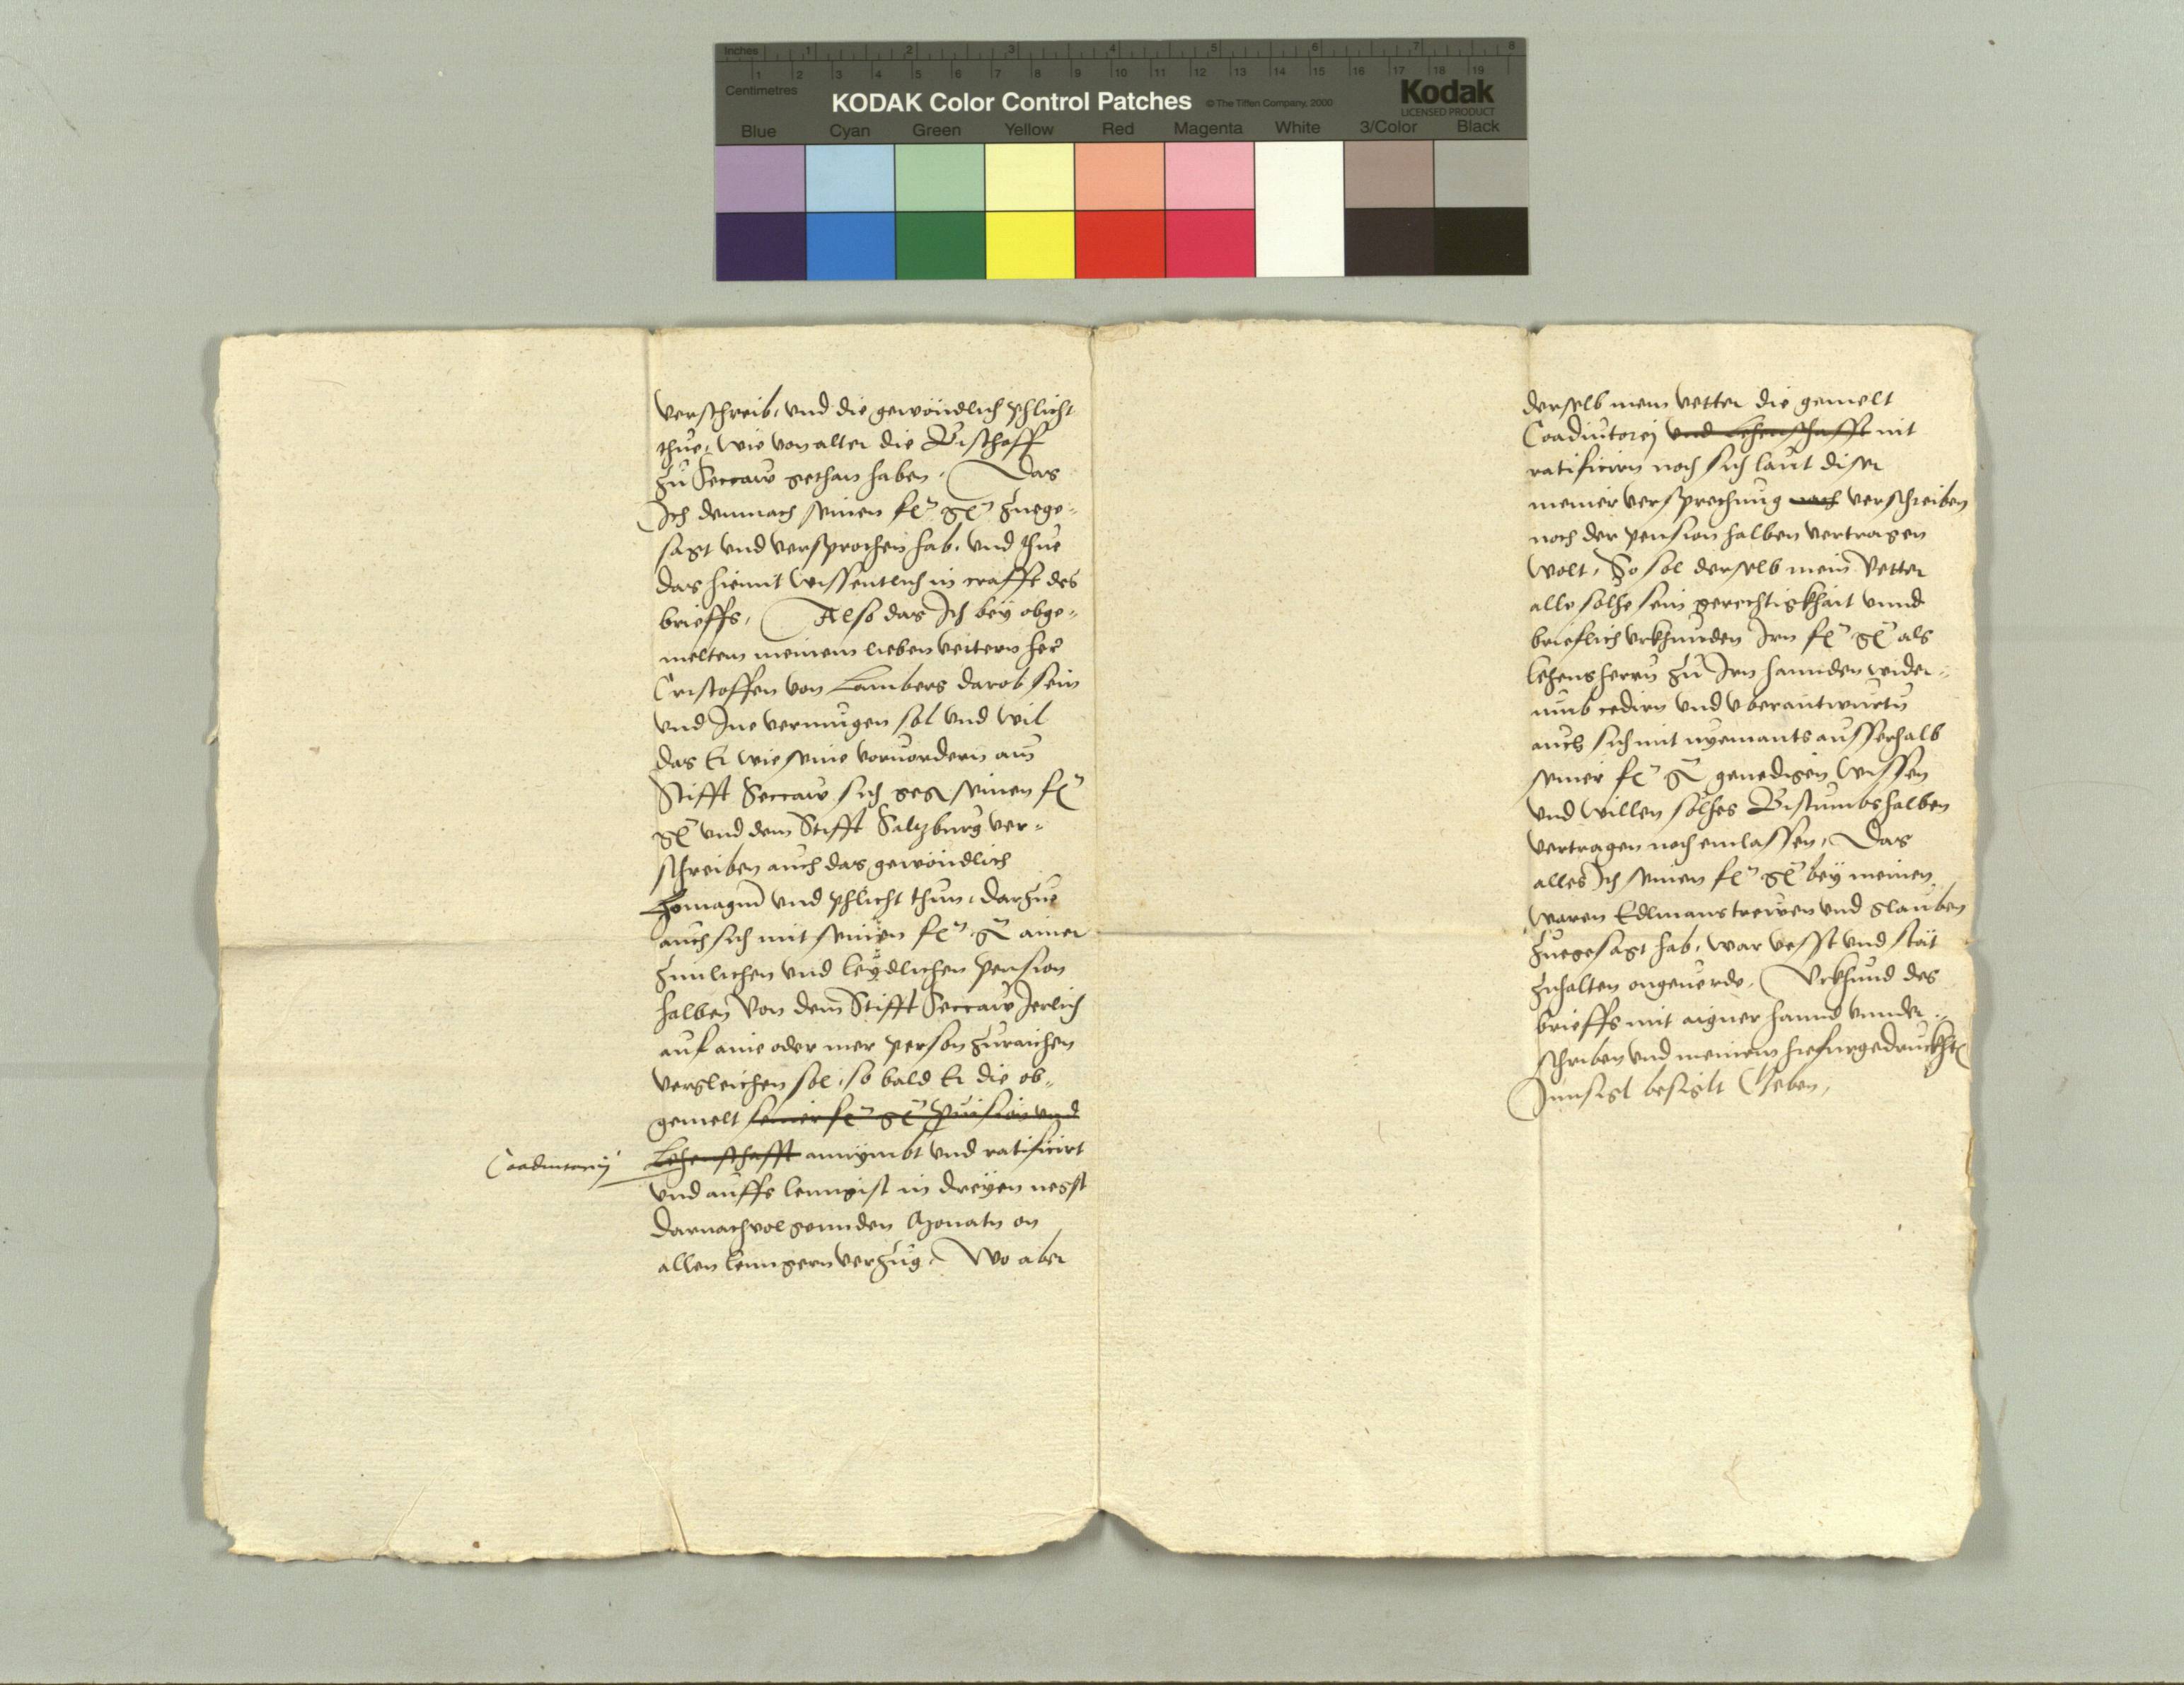 Inches 1 2 3 4 5 6 7 8
1 2 3 4 5 6 7 8 9 10 11 12 13 14 15 16 17 18 19
Centimetres
KODAK Color Control Patches © The Tiffen Company, 2000 Kodak
LICENSED PRODUCT
Blue Cyan Green Yellow Red Magenta White 3/Color Black
verschreib, und die gewöndlich phlicht
thue, wie von alter die Bischoff
zu Seccaw gethan haben. Das
Ich demnach seinen fr gn zuege-
sagt und versprochen hab, und thue
das hiemit wissentlich in crafft des
brieffs, Also das Ich bey obge-
meltem meinem lieben vettern her
Cristoffen von Lamberg darob sein
und Ine vermugen sol und wil
das Er wie seine vorvordern am
Stifft Seccaw sich gegn seinen fr
gn und dem Stifft Saltzburg ver-
schreiben auch das gewöndlich
homagium und phlicht thun, darzue
auch sich mit seinen fr gn ainer
zimlichen und leydlichen pension
halben von dem Stifft Seccaw Jerlich
auf aine oder mer person zuraichen
vergleichen sol, so bald Er die ob-
gemelt seiner fr gn und
Coadiutorey Lehenschafft annymbt und ratificirt
und auffs lenngist in dreyen negst
darnachvolgennden Monatn on
allen lenngern verzug. Wo aber
derselb mein vetter die gemelt
Coadiutorej und Lehenschafft nit
ratificirn noch sich laut diser
meiner versprechnung noch verschreiben
noch der pension halben vertragen
wolt, So sol derselb mein Vetter
alle solhe sein gerechtigkhait unnd
brieflich urkhunden Irn fr gn als
lehensherrn zu Irn hannden wider-
umb cedirn und uberantwurtn
auch sich mit nyemants ausserhalb
seiner fr gn genedigen wissen
und willen solhes Bistumbs halben
vertragen noch einlassen, Das
alles Ich seinen fr gn bey meinen
waren Edlmans trewen und glauben
zuegesagt hab, war vesst und stät
zuhalten ongeverde, Urkhund des
brieffs mit aigner hannd unnder-
schriben und meinem hiefurgedruckhtn
Innsigl besiglt Geben,